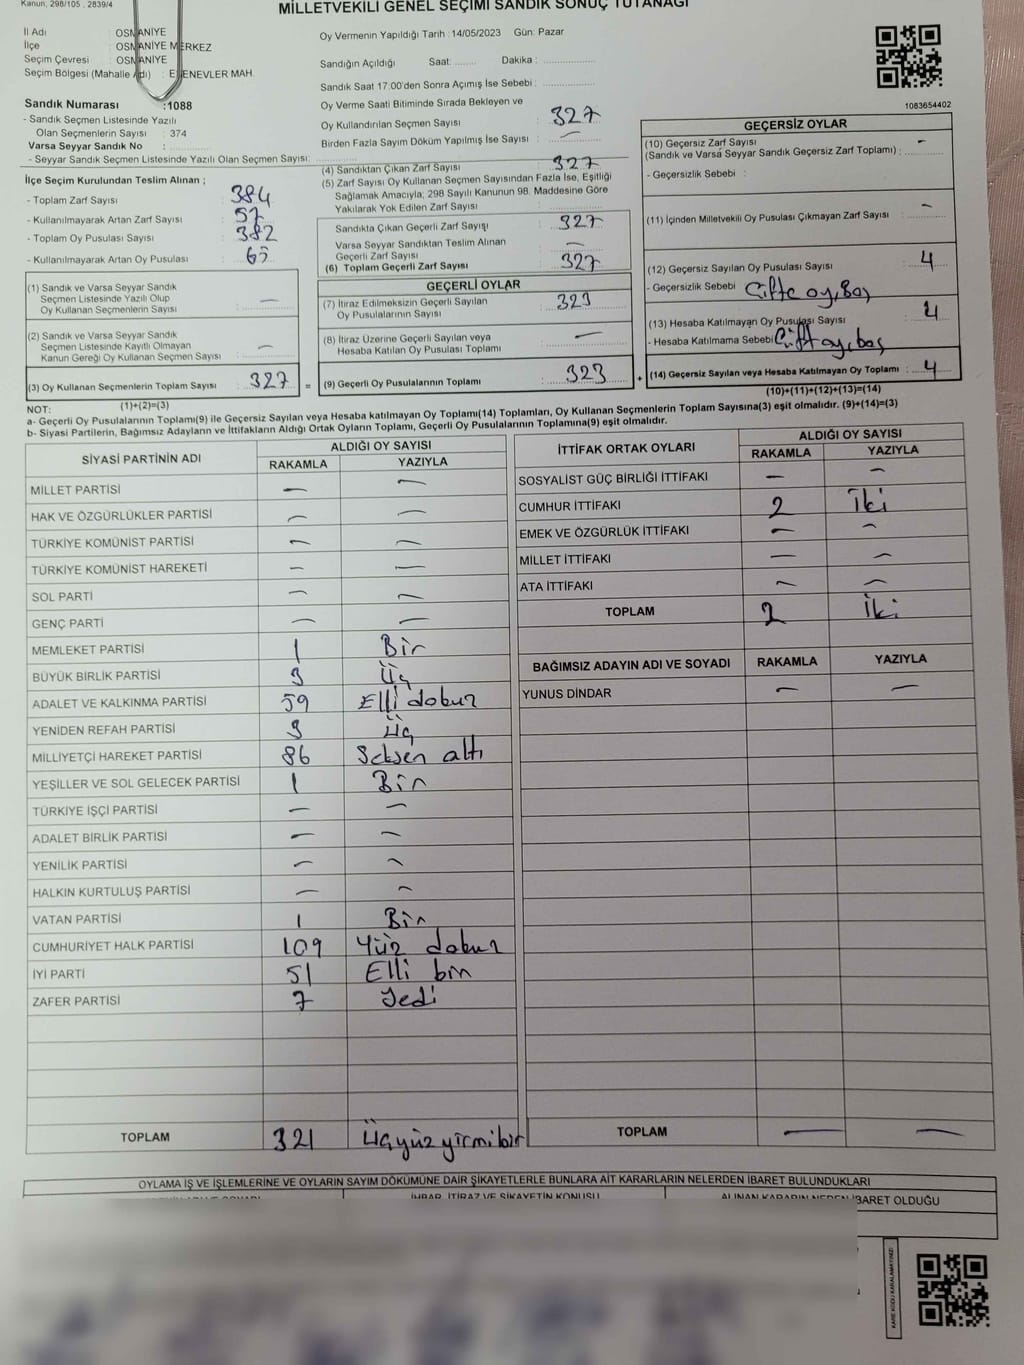 Kanun, 298/105 , 2839/4
MİLLETVEKİLİ GENEL SEÇİMİ SANDIK SONUÇ TUTANAĞI
İl Adı : OSMANİYE
İlçe : OSMANİYE MERKEZ
Seçim Çevresi : OSMANİYE
Seçim Bölgesi (Mahalle Adı) : ESENEVLER MAH.
Sandık Numarası :1088
- Sandık Seçmen Listesinde Yazılı
Olan Seçmenlerin Sayısı : 374
Varsa Seyyar Sandık No :
- Seyyar Sandık Seçmen Listesinde Yazılı Olan Seçmen Sayısı:
İlçe Seçim Kurulundan Teslim Alınan ;
- Toplam Zarf Sayısı : 384
- Kullanılmayarak Artan Zarf Sayısı : 57
- Toplam Oy Pusulası Sayısı : 382
- Kullanılmayarak Artan Oy Pusulası : 65
(1) Sandık ve Varsa Seyyar Sandık
Seçmen Listesinde Yazılı Olup
Oy Kullanan Seçmenlerin Sayısı : —
(2) Sandık ve Varsa Seyyar Sandık
Seçmen Listesinde Kayıtlı Olmayan
Kanun Gereği Oy Kullanan Seçmen Sayısı : —
(3) Oy Kullanan Seçmenlerin Toplam Sayısı : 327 =
(1)+(2)=(3)
Oy Vermenin Yapıldığı Tarih :14/05/2023 Gün: Pazar
Sandığın Açıldığı Saat: Dakika :
Sandık Saat 17:00'den Sonra Açımış İse Sebebi :
Oy Verme Saati Bitiminde Sırada Bekleyen ve
Oy Kullandırılan Seçmen Sayısı : 327
Birden Fazla Sayım Döküm Yapılmış İse Sayısı : —
(4) Sandıktan Çıkan Zarf Sayısı : 327
(5) Zarf Sayısı Oy Kullanan Seçmen Sayısından Fazla İse, Eşitliği
Sağlamak Amacıyla, 298 Sayılı Kanunun 98. Maddesine Göre
Yakılarak Yok Edilen Zarf Sayısı :
Sandıkta Çıkan Geçerli Zarf Sayısı : 327
Varsa Seyyar Sandıktan Teslim Alınan
Geçerli Zarf Sayısı : —
(6) Toplam Geçerli Zarf Sayısı : 327
GEÇERLİ OYLAR
(7) İtiraz Edilmeksizin Geçerli Sayılan
Oy Pusulalarının Sayısı : 323
(8) İtiraz Üzerine Geçerli Sayılan veya
Hesaba Katılan Oy Pusulası Toplamı : —
(9) Geçerli Oy Pusulalarının Toplamı : 323 +
1083654402
GEÇERSİZ OYLAR
(10) Geçersiz Zarf Sayısı
(Sandık ve Varsa Seyyar Sandık Geçersiz Zarf Toplamı) : —
- Geçersizlik Sebebi :
(11) İçinden Milletvekili Oy Pusulası Çıkmayan Zarf Sayısı : —
(12) Geçersiz Sayılan Oy Pusulası Sayısı : 4
- Geçersizlik Sebebi : Çifte oy, Boş
(13) Hesaba Katılmayan Oy Pusulası Sayısı : 4
- Hesaba Katılmama Sebebi : Çift oy, boş
(14) Geçersiz Sayılan veya Hesaba Katılmayan Oy Toplamı : 4
(10)+(11)+(12)+(13)=(14)
NOT:
a- Geçerli Oy Pusulalarının Toplamı(9) ile Geçersiz Sayılan veya Hesaba katılmayan Oy Toplamı(14) Toplamları, Oy Kullanan Seçmenlerin Toplam Sayısına(3) eşit olmalıdır. (9)+(14)=(3)
b- Siyasi Partilerin, Bağımsız Adayların ve İttifakların Aldığı Ortak Oyların Toplamı, Geçerli Oy Pusulalarının Toplamına(9) eşit olmalıdır.
SİYASİ PARTİNİN ADI ALDIĞI OY SAYISI
RAKAMLA YAZIYLA
MİLLET PARTİSİ — —
HAK VE ÖZGÜRLÜKLER PARTİSİ — —
TÜRKİYE KOMÜNİST PARTİSİ — —
TÜRKİYE KOMÜNİST HAREKETİ — —
SOL PARTİ — —
GENÇ PARTİ — —
MEMLEKET PARTİSİ 1 Bir
BÜYÜK BİRLİK PARTİSİ 3 Üç
ADALET VE KALKINMA PARTİSİ 59 Elli dokuz
YENİDEN REFAH PARTİSİ 3 Üç
MİLLİYETÇİ HAREKET PARTİSİ 86 Seksen altı
YEŞİLLER VE SOL GELECEK PARTİSİ 1 Bir
TÜRKİYE İŞÇİ PARTİSİ — —
ADALET BİRLİK PARTİSİ — —
YENİLİK PARTİSİ — —
HALKIN KURTULUŞ PARTİSİ — —
VATAN PARTİSİ 1 Bir
CUMHURİYET HALK PARTİSİ 109 Yüz dokuz
İYİ PARTİ 51 Elli bir
ZAFER PARTİSİ 7 Yedi
TOPLAM 321 Üçyüz yirmibir
İTTİFAK ORTAK OYLARI ALDIĞI OY SAYISI
RAKAMLA YAZIYLA
SOSYALİST GÜÇ BİRLİĞİ İTTİFAKI — —
CUMHUR İTTİFAKI 2 İki
EMEK VE ÖZGÜRLÜK İTTİFAKI — —
MİLLET İTTİFAKI — —
ATA İTTİFAKI — —
TOPLAM 2 İki
BAĞIMSIZ ADAYIN ADI VE SOYADI RAKAMLA YAZIYLA
YUNUS DİNDAR — —
TOPLAM — —
OYLAMA İŞ VE İŞLEMLERİNE VE OYLARIN SAYIM DÖKÜMÜNE DAİR ŞİKAYETLERLE BUNLARA AİT KARARLARIN NELERDEN İBARET BULUNDUKLARI
İHBAR, İTİRAZ VE ŞİKAYETİN KONUSU ALINAN KARARIN NEDEN İBARET OLDUĞU
KARE KODU KARALAMAYINIZ!